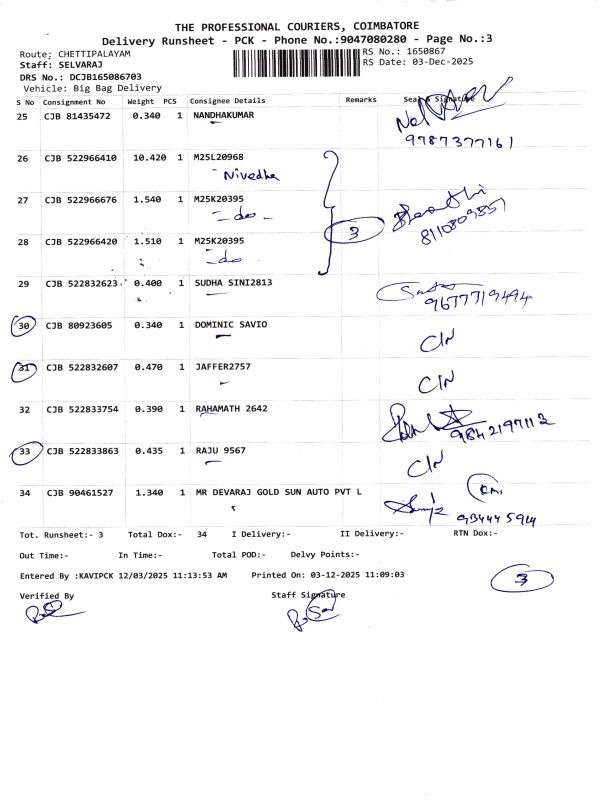 THE PROFESSIONAL COURIERS, COIMBATORE
Delivery Runsheet - PCK - Phone No.:9047080280 - Page No.:3
Route: CHETTIPALAYAM RS No.: 1650867
Staff: SELVARAJ RS Date: 03-Dec-2025
DRS No.: DCJB165086703
Vehicle: Big Bag Delivery
S No Consignment No Weight PCS Consignee Details Remarks Seal & Signature
25 CJB 81435472 0.340 1 NANDHAKUMAR
9787377161
26 CJB 522966410 10.420 1 M25L20968
Nivedha
27 CJB 522966676 1.540 1 M25K20395
- do -
3
8110809851
28 CJB 522966420 1.510 1 M25K20395
- do
29 CJB 522832623 0.400 1 SUDHA SINI2813
9677719494
30 CJB 80923605 0.340 1 DOMINIC SAVIO
C/N
31 CJB 522832607 0.470 1 JAFFER2757
C/N
32 CJB 522833754 0.390 1 RAHAMATH 2642
9842197112
33 CJB 522833863 0.435 1 RAJU 9567
C/N
34 CJB 90461527 1.340 1 MR DEVARAJ GOLD SUN AUTO PVT L
Tot. Runsheet:- 3 Total Dox:- 34 I Delivery:- II Delivery:- RTN Dox:-
Out Time:- In Time:- Total POD:- Delvy Points:-
Entered By :KAVIPCK 12/03/2025 11:13:53 AM Printed On: 03-12-2025 11:09:03
3
Verified By Staff Signature